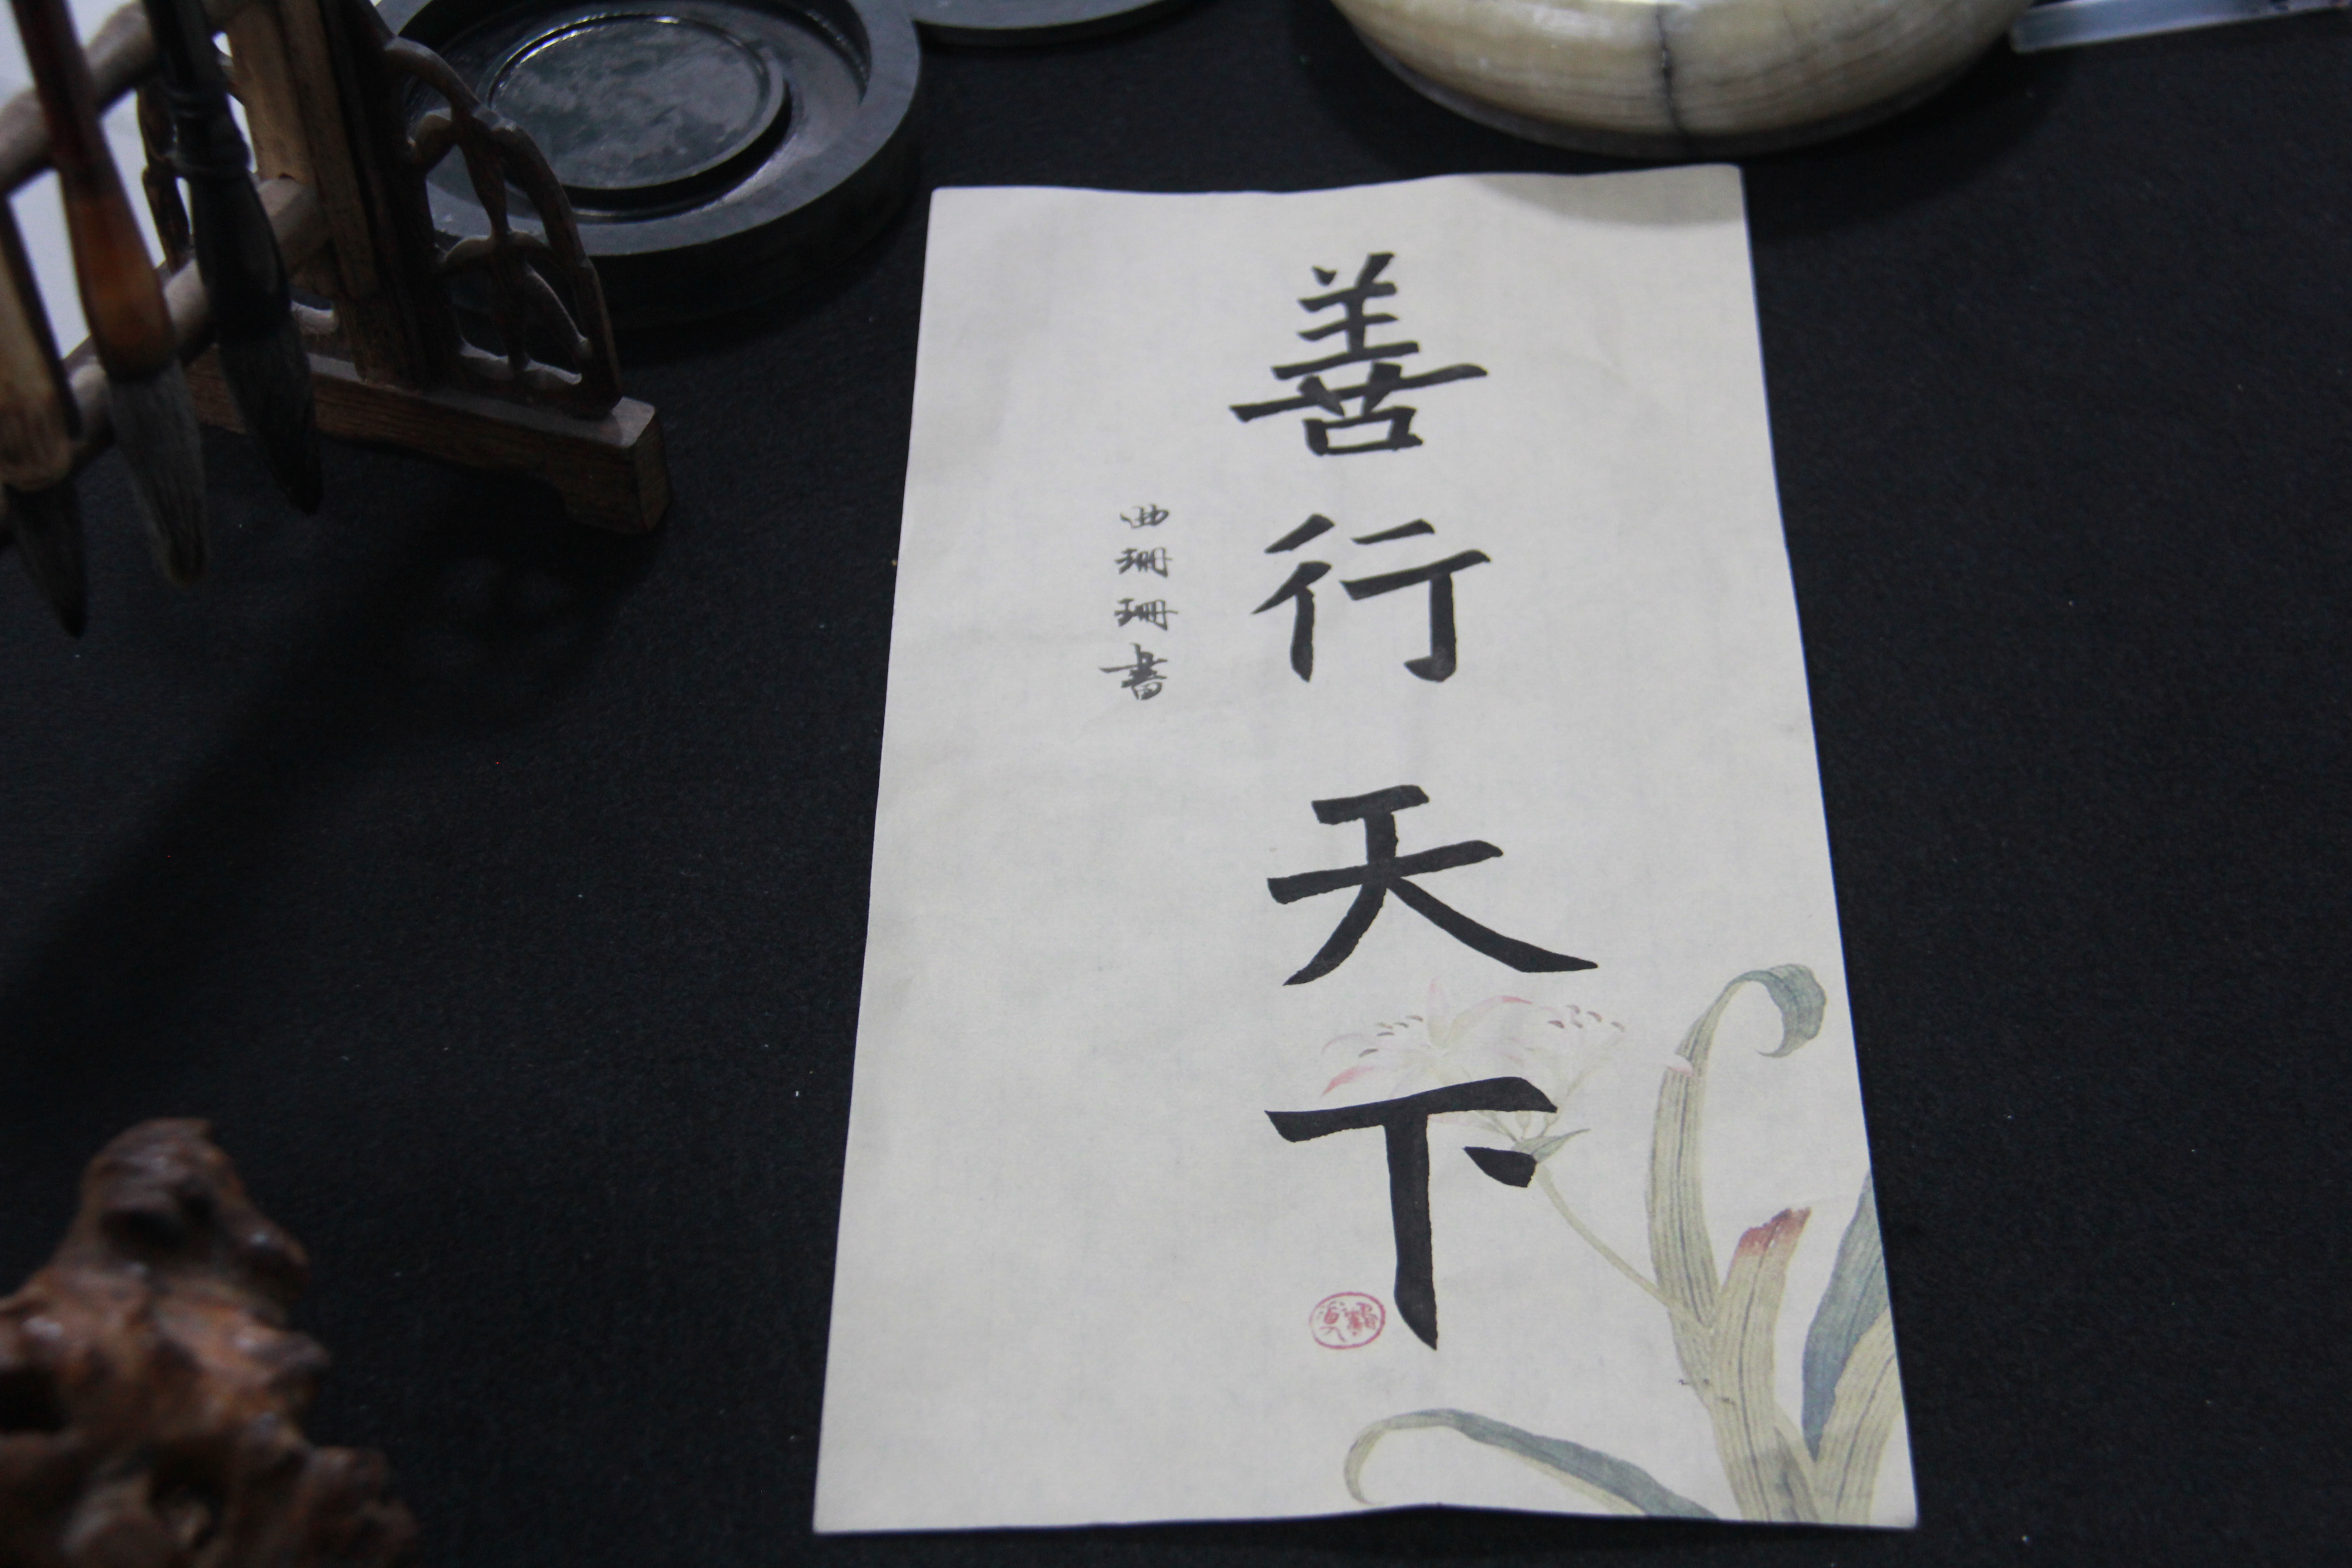 善行天下
曲珊珊書